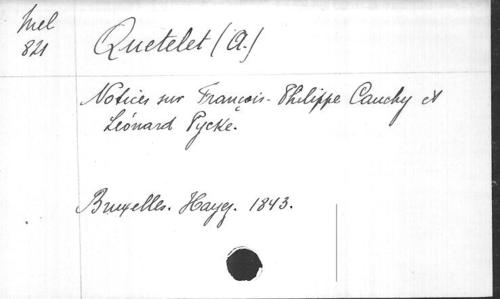 Mel
821
Quetelet (A.)
Notices sur François-Philippe Cauchy et
Léonard Pycke.
Bruxelles. Hayez. 1843.